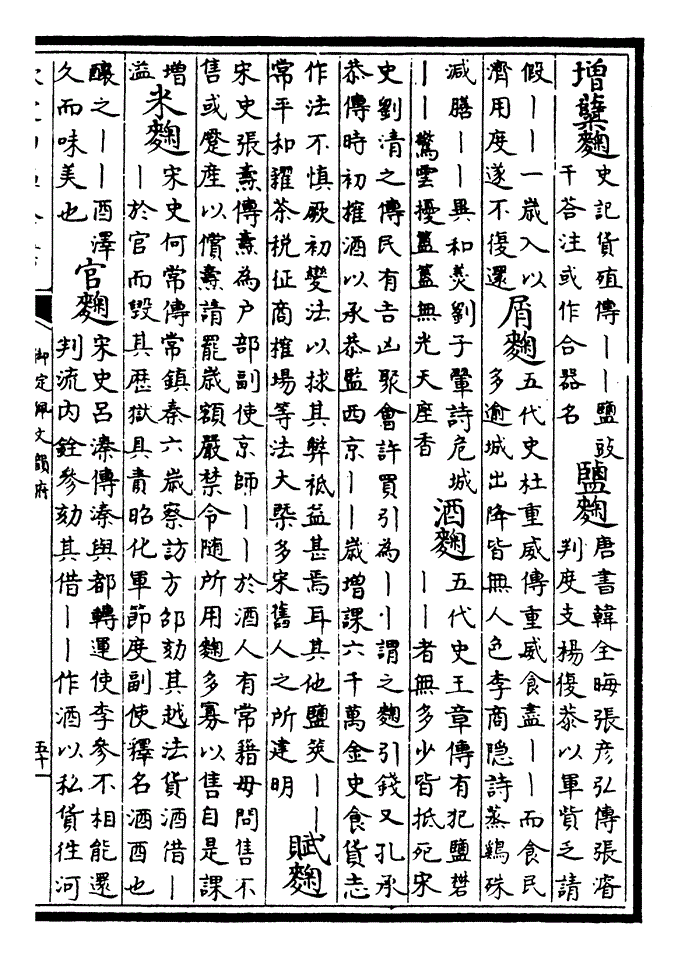 增糵麴 史記貨殖傳——鹽豉千荅注或作合器名 鹽麴 唐書韓全晦張彦弘傳張濬判度支楊復恭以軍貲乏請
假——一歲入以濟用度遂不復還 屑麴 五代史杜重威傳重威食盡——而食民多逾城出降皆無人色李商隐詩蒸鷄殊
減膳——異和羹劉子翬詩危城——驚雲擾藎藎無光天座香 酒麴 五代史王章傳有犯鹽礬——者無多少皆抵死宋
史劉清之傳民有吉凶聚會許買引為—刂謂之麴引錢又孔承恭傳時初榷酒以承恭監西京——歲增課六千萬金史食貨志
作法不慎厥初變法以捄其弊祇益甚焉耳其他鹽筴——常平和糴茶税征商榷場等法大槩多宋舊人之所建明 賦麴
宋史張燾傳燾為户部副使京師——於酒人有常籍毋問售不售或蹙產以償燾請罷歲額嚴禁令随所用麴多寡以售自是課
增溢 米麴 宋史何常傳常鎮秦六歲察訪方邵劾其越法貨酒借——於官而毁其歴獄具責昭化軍節度副使釋名酒酉也
釀之——酉澤久而味美也 官麴 宋史呂溱傳溱與都轉運使李參不相能還判流内銓參劾其借——作酒以私貨往河
御定佩文韻府
五十一